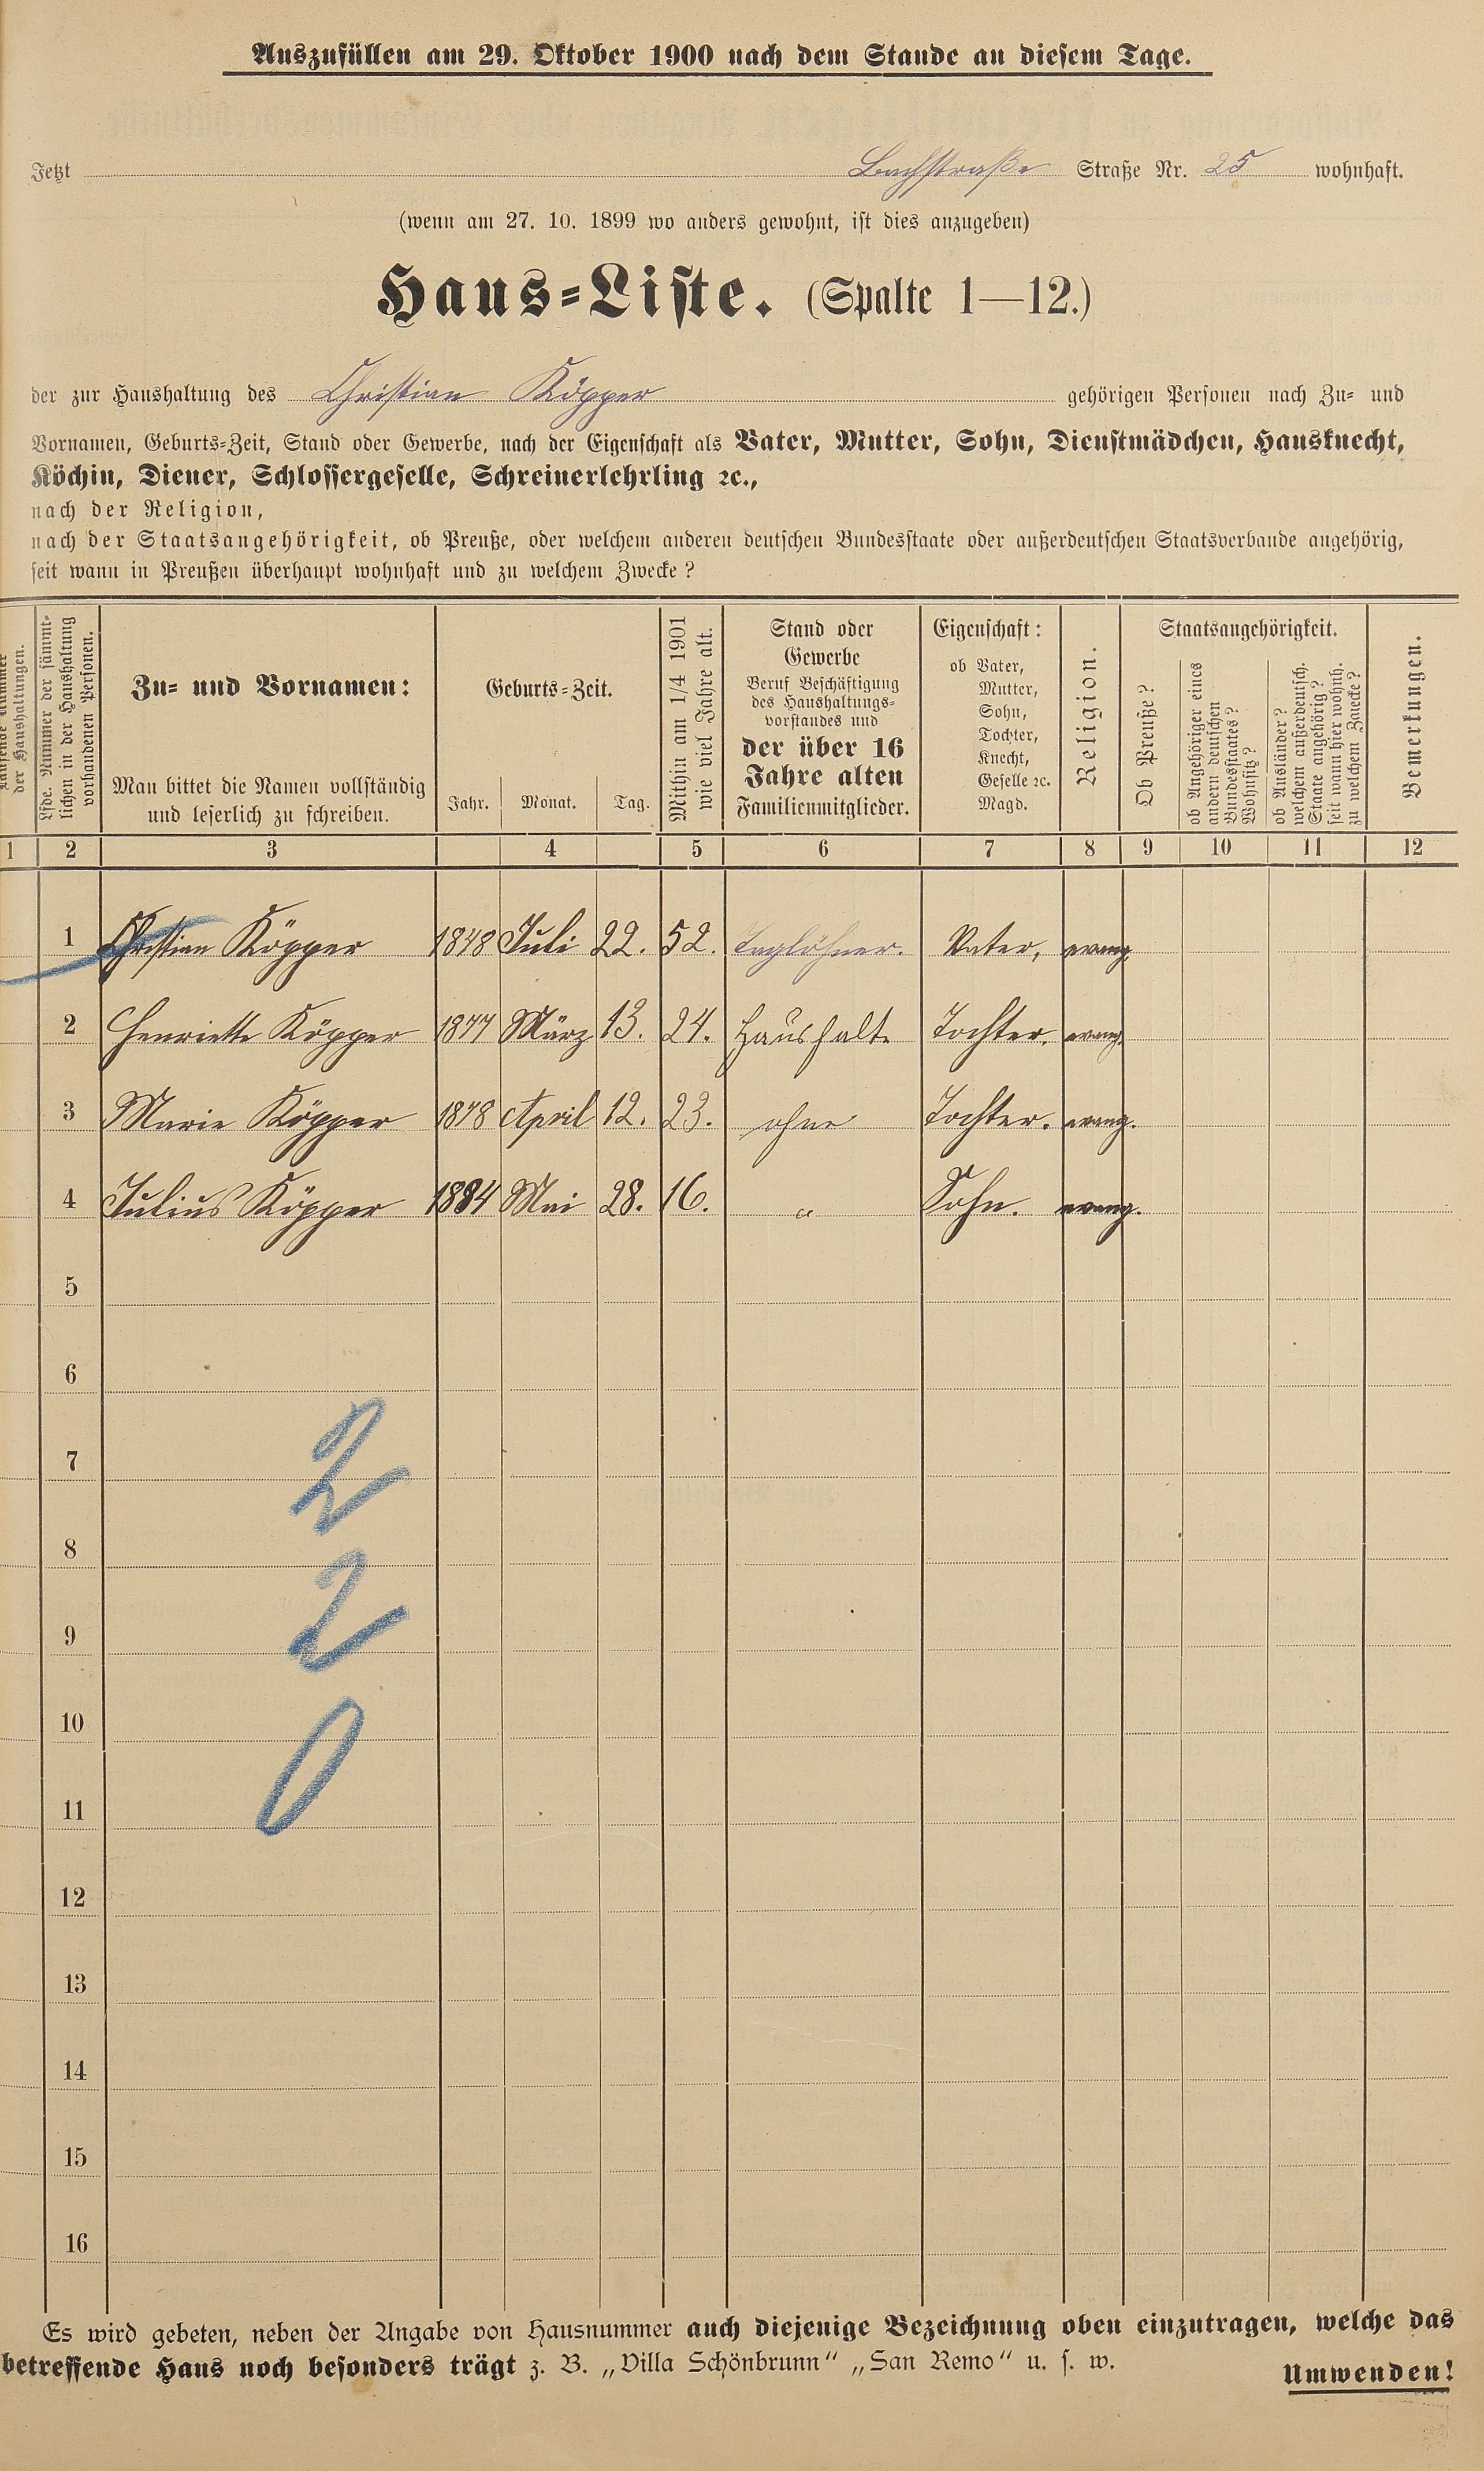 Auszufüllen am 29. Oktober 1900 nach dem Stande an diesem Tage.
Jetzt Bachstraße Straße Nr. 25 wohnhaft.
(wenn am 27. 10. 1899 wo anders gewohnt, ist dies anzugeben)
Haus-Liste. (Spalte 1—12.)
der zur Haushaltung des Christian Köpper gehörigen Personen nach Zu- und
Vornamen, Geburts-Zeit, Stand oder Gewerbe, nach der Eigenschaft als Vater, Mutter, Sohn, Dienstmädchen, Hausknecht,
Köchin, Diener, Schlossergeselle, Schreinerlehrling ꝛc.,
nach der Religion,
nach der Staatsangehörigkeit, ob Preuße, oder welchem anderen deutschen Bundesstaate oder außerdeutschen Staatsverbande angehörig,
seit wann in Preußen überhaupt wohnhaft und zu welchem Zwecke?
Laufende Nummer
der Haushaltungen.
Lfde. Nummer der sämmt-
lichen in der Haushaltung
vorhandenen Personen.
Zu- und Vornamen:
Man bittet die Namen vollständig
und leserlich zu schreiben.
Geburts-Zeit.
Jahr. Monat. Tag.
Mithin am 1/4 1901
wie viel Jahre alt.
Stand oder
Gewerbe
Beruf Beschäftigung
des Haushaltungs-
vorstandes und
der über 16
Jahre alten
Familienmitglieder.
Eigenschaft:
ob Vater,
Mutter,
Sohn,
Tochter,
Knecht,
Geselle ꝛc.
Magd.
Religion.
Staatsangehörigkeit.
Ob Preuße?
ob Angehöriger eines
andern deutschen
Bundesstaates?
Wohnsitz?
ob Ausländer?
welchem außerdeutsch.
Staate angehörig?
seit wann hier wohnh.
zu welchem Zwecke?
Bemerkungen.
1 2 3 4 5 6 7 8 9 10 11 12
1 Christian Köpper 1848 Juli 22. 52. Taglöhner. Vater, evang.
2 Henriette Köpper 1877 März 13. 24. Haushalt. Tochter. evang.
3 Marie Köpper 1878 April 12. 23. ohne Tochter. evang.
4 Julius Köpper 1884 Mai 28. 16. " Sohn. evang.
5
6
7
2
8
9
2
10
11
0
12
13
14
15
16
Es wird gebeten, neben der Angabe von Hausnummer auch diejenige Bezeichnung oben einzutragen, welche das
betreffende Haus noch besonders trägt z. B. „Villa Schönbrunn" „San Remo" u. s. w.
Umwenden!